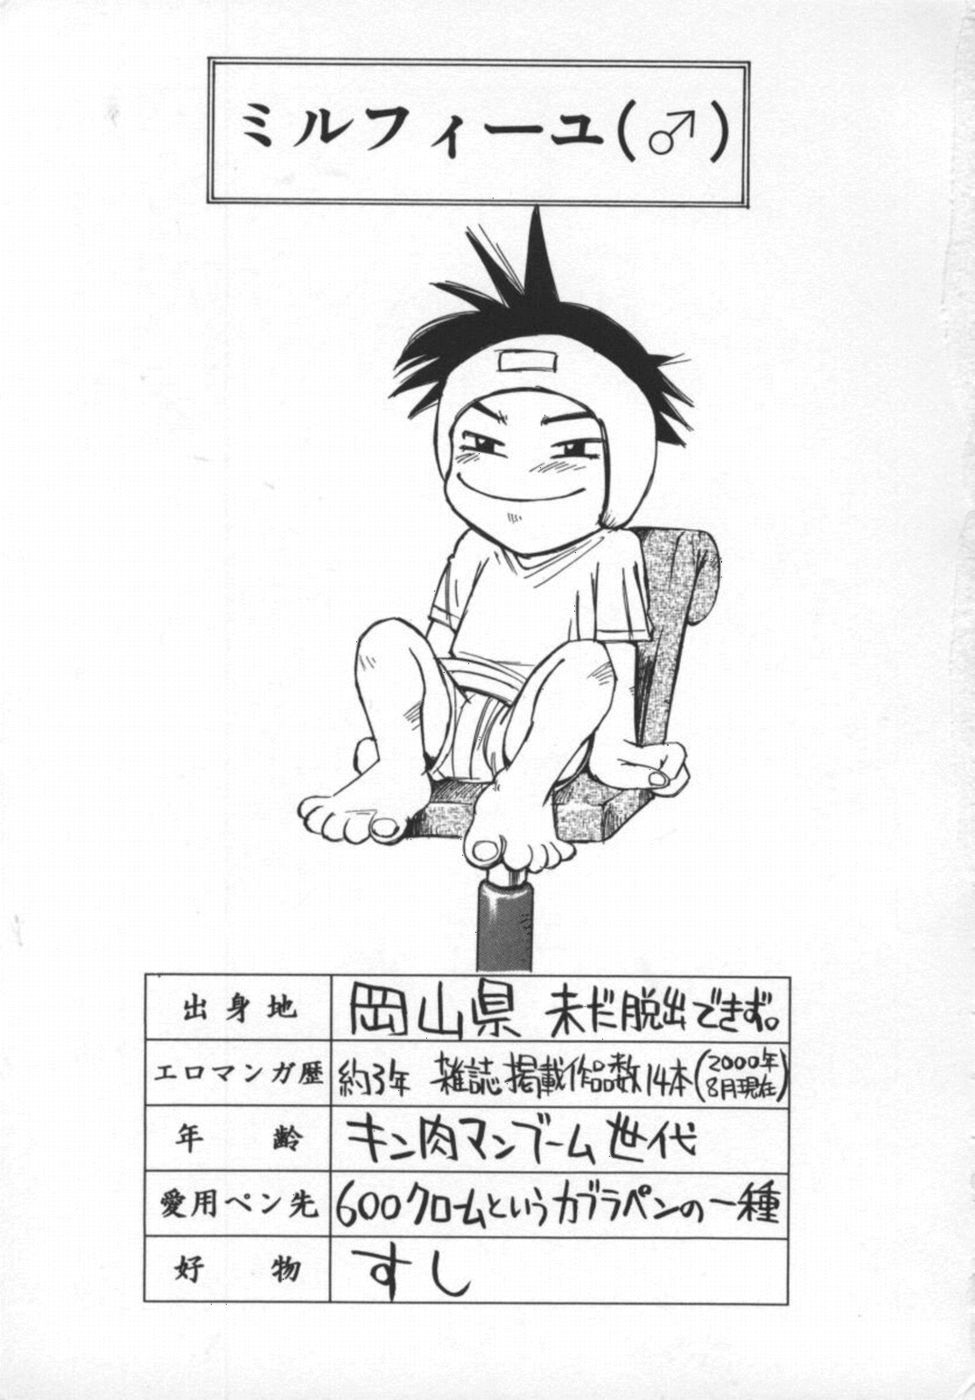 ミルフィーユ(♂)
出身地 岡山県 未だ脱出できず。
エロマンガ歴 約3年 雑誌掲載作品数14本(2000年8月現在)
年齢 キン肉マンブーム世代
愛用ペン先 600クロームというカブラペンの一種
好物 すし